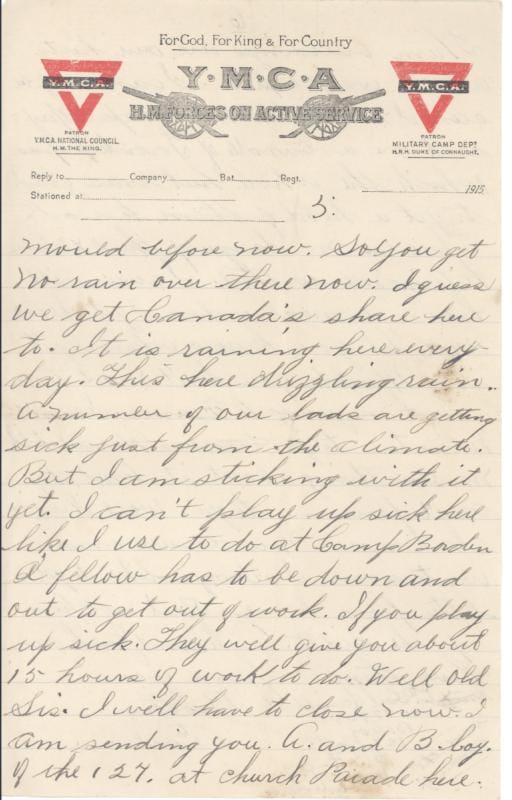 For God, For King & For Country
Y·M·C·A
H.M. FORCES ON ACTIVE SERVICE
Y.M.C.A.
PATRON
Y.M.C.A. NATIONAL COUNCIL.
H.M. THE KING.
Y.M.C.A.
PATRON
MILITARY CAMP DEPT
H.R.H. DUKE OF CONNAUGHT.
Reply to Company Bat. Regt.
Stationed at
1915
5.
mould before now. So you get
no rain over there now. I guess
we get Canada's share here
to. It is raining here every
day. This here drizzling rain.
A number of our lads are getting
sick just from the climate.
But I am sticking with it
yet. I can't play up sick here
like I use to do at Camp Borden
A fellow has to be down and
out to get out of work. If you play
up sick. They will give you about
15 hours of work to do. Well old
Sis. I will have to close now. I
am sending you. A. and B. Coy.
of the 127. at church Parade here.